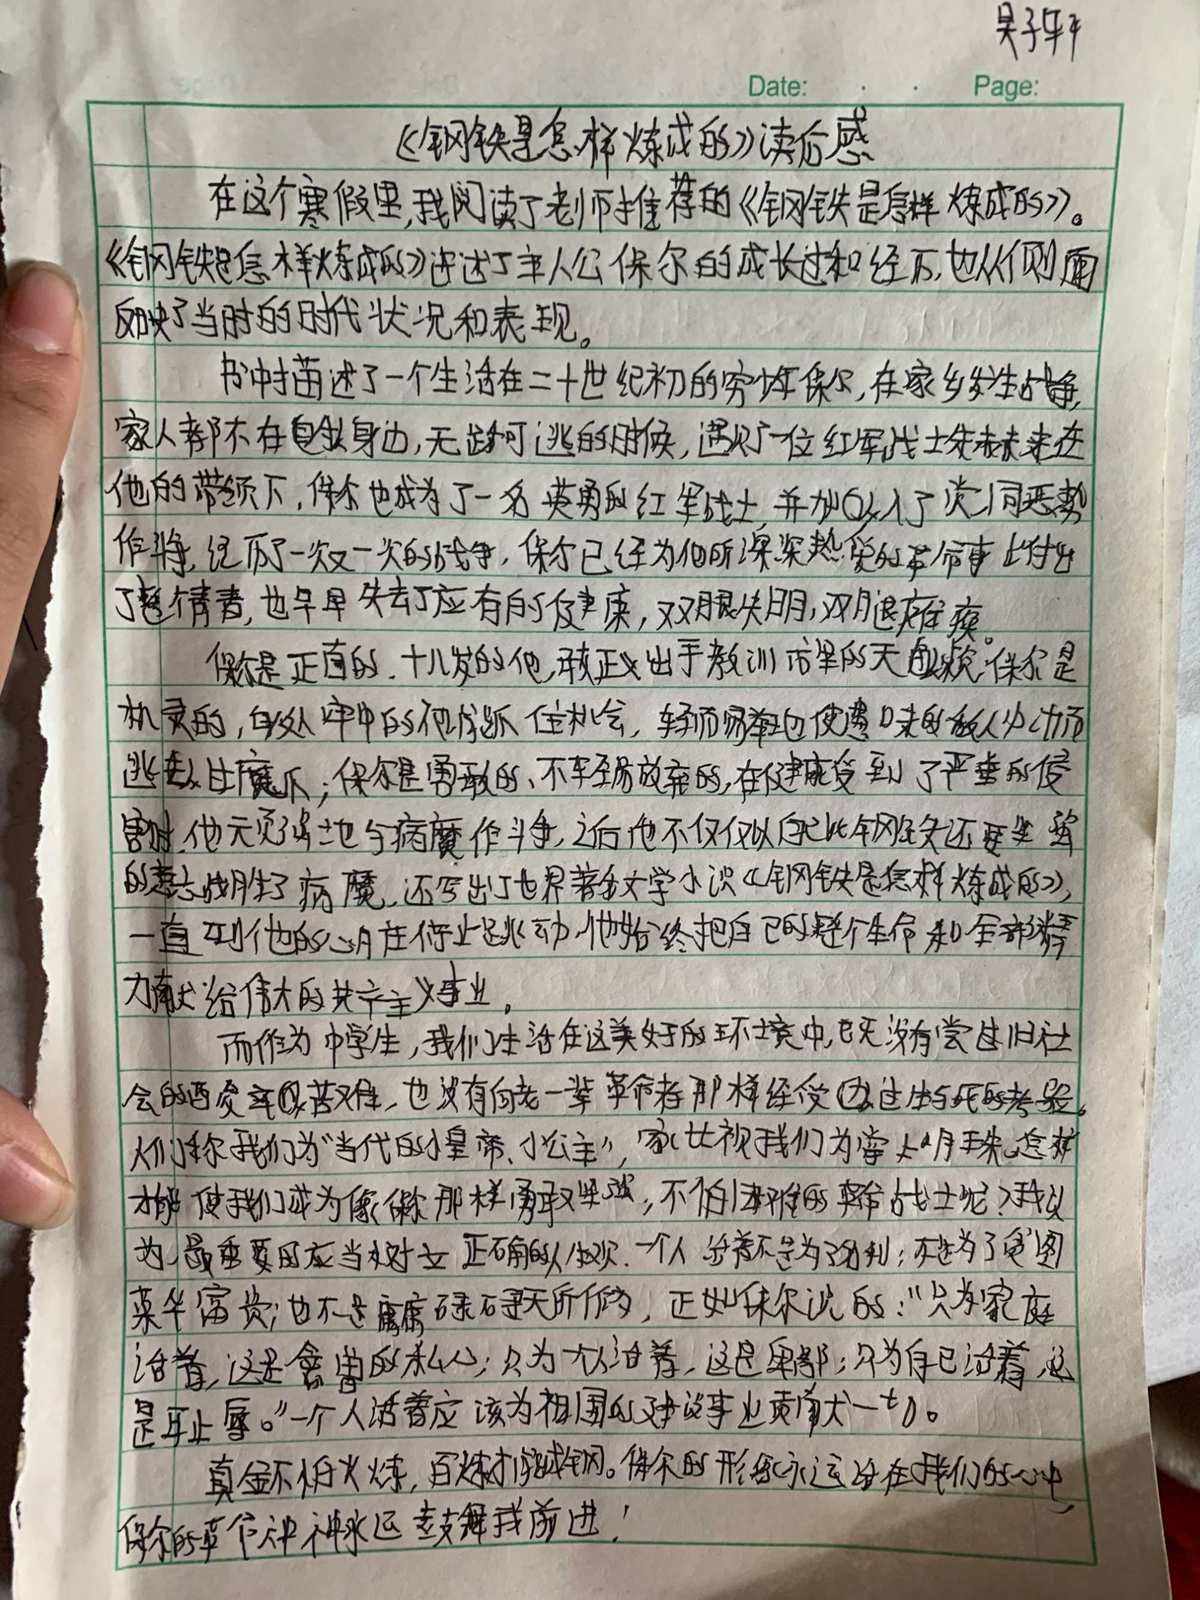 吴子轩
Date: . . Page:
《钢铁是怎样炼成的》读后感
在这个寒假里,我阅读了老师推荐的《钢铁是怎样炼成的》。
《钢铁是怎样炼成的》讲述了主人公保尔的成长过和经历,也从侧面
反映了当时的时代状况和表现。
书中描述了一个生活在二十世纪初的穷少年保尔,在家乡发生战争,
家人都不在自身边,无路可逃的时候,遇见了一位红军战士朱赫来在
他的带领下,保尔也成为了一名英勇的红军战士,并加入了同恶势
作斗争,经历了一次又一次的战争,保尔已经为他所深深热爱的革命事业付出
了整个青春,也早早失去了应有的健康,双眼失明,双腿瘫痪。
保尔是正直的,十几岁的他,敢正义出手教训市里的天。保尔是
机灵的,身处牢中的他能抓住机会,轻而易举地使愚昧的敌人少功而
逃出魔爪;保尔是勇敢的、不轻易放弃的,在健康受到了严重的侵
害时,他无忌地与病魔作斗争,之后他不仅仅以自比钢铁还要坚强
的意志战胜了病魔,还写出了世界著名文学小说《钢铁是怎样炼成的》,
一直到他的心脏停止跳动,他始终把自己的整个生命和全部精
力献给伟大的共产主义事业。
而作为中学生,我们生活在这美好的环境中,既无没有尝过旧社
会的酸苦难,也没有向老一辈革命者那样经受过生与死的考验。
人们称我们为“当代的小皇帝、小公主”,家视我们为掌上明珠,怎样
才能使我们成为像保尔那样勇敢坚强,不怕困难的革命战士呢?我认
为,最重要的应当树立正确的人生观,一个人活着不是为了名利;不是为了贪图
荣华富贵;也不是庸庸碌碌无所作为,正如保尔说的:“只为家庭
活着,这是禽兽的私心;只为一人活着,这是卑鄙;只为自己活着,这
是耻辱。”一个人活着应该为祖国的建设事业贡献一切。
真金不怕火炼,百炼才能成钢。保尔的形象永远活在我们的心中,
保尔的革命精神永远鼓舞我前进!